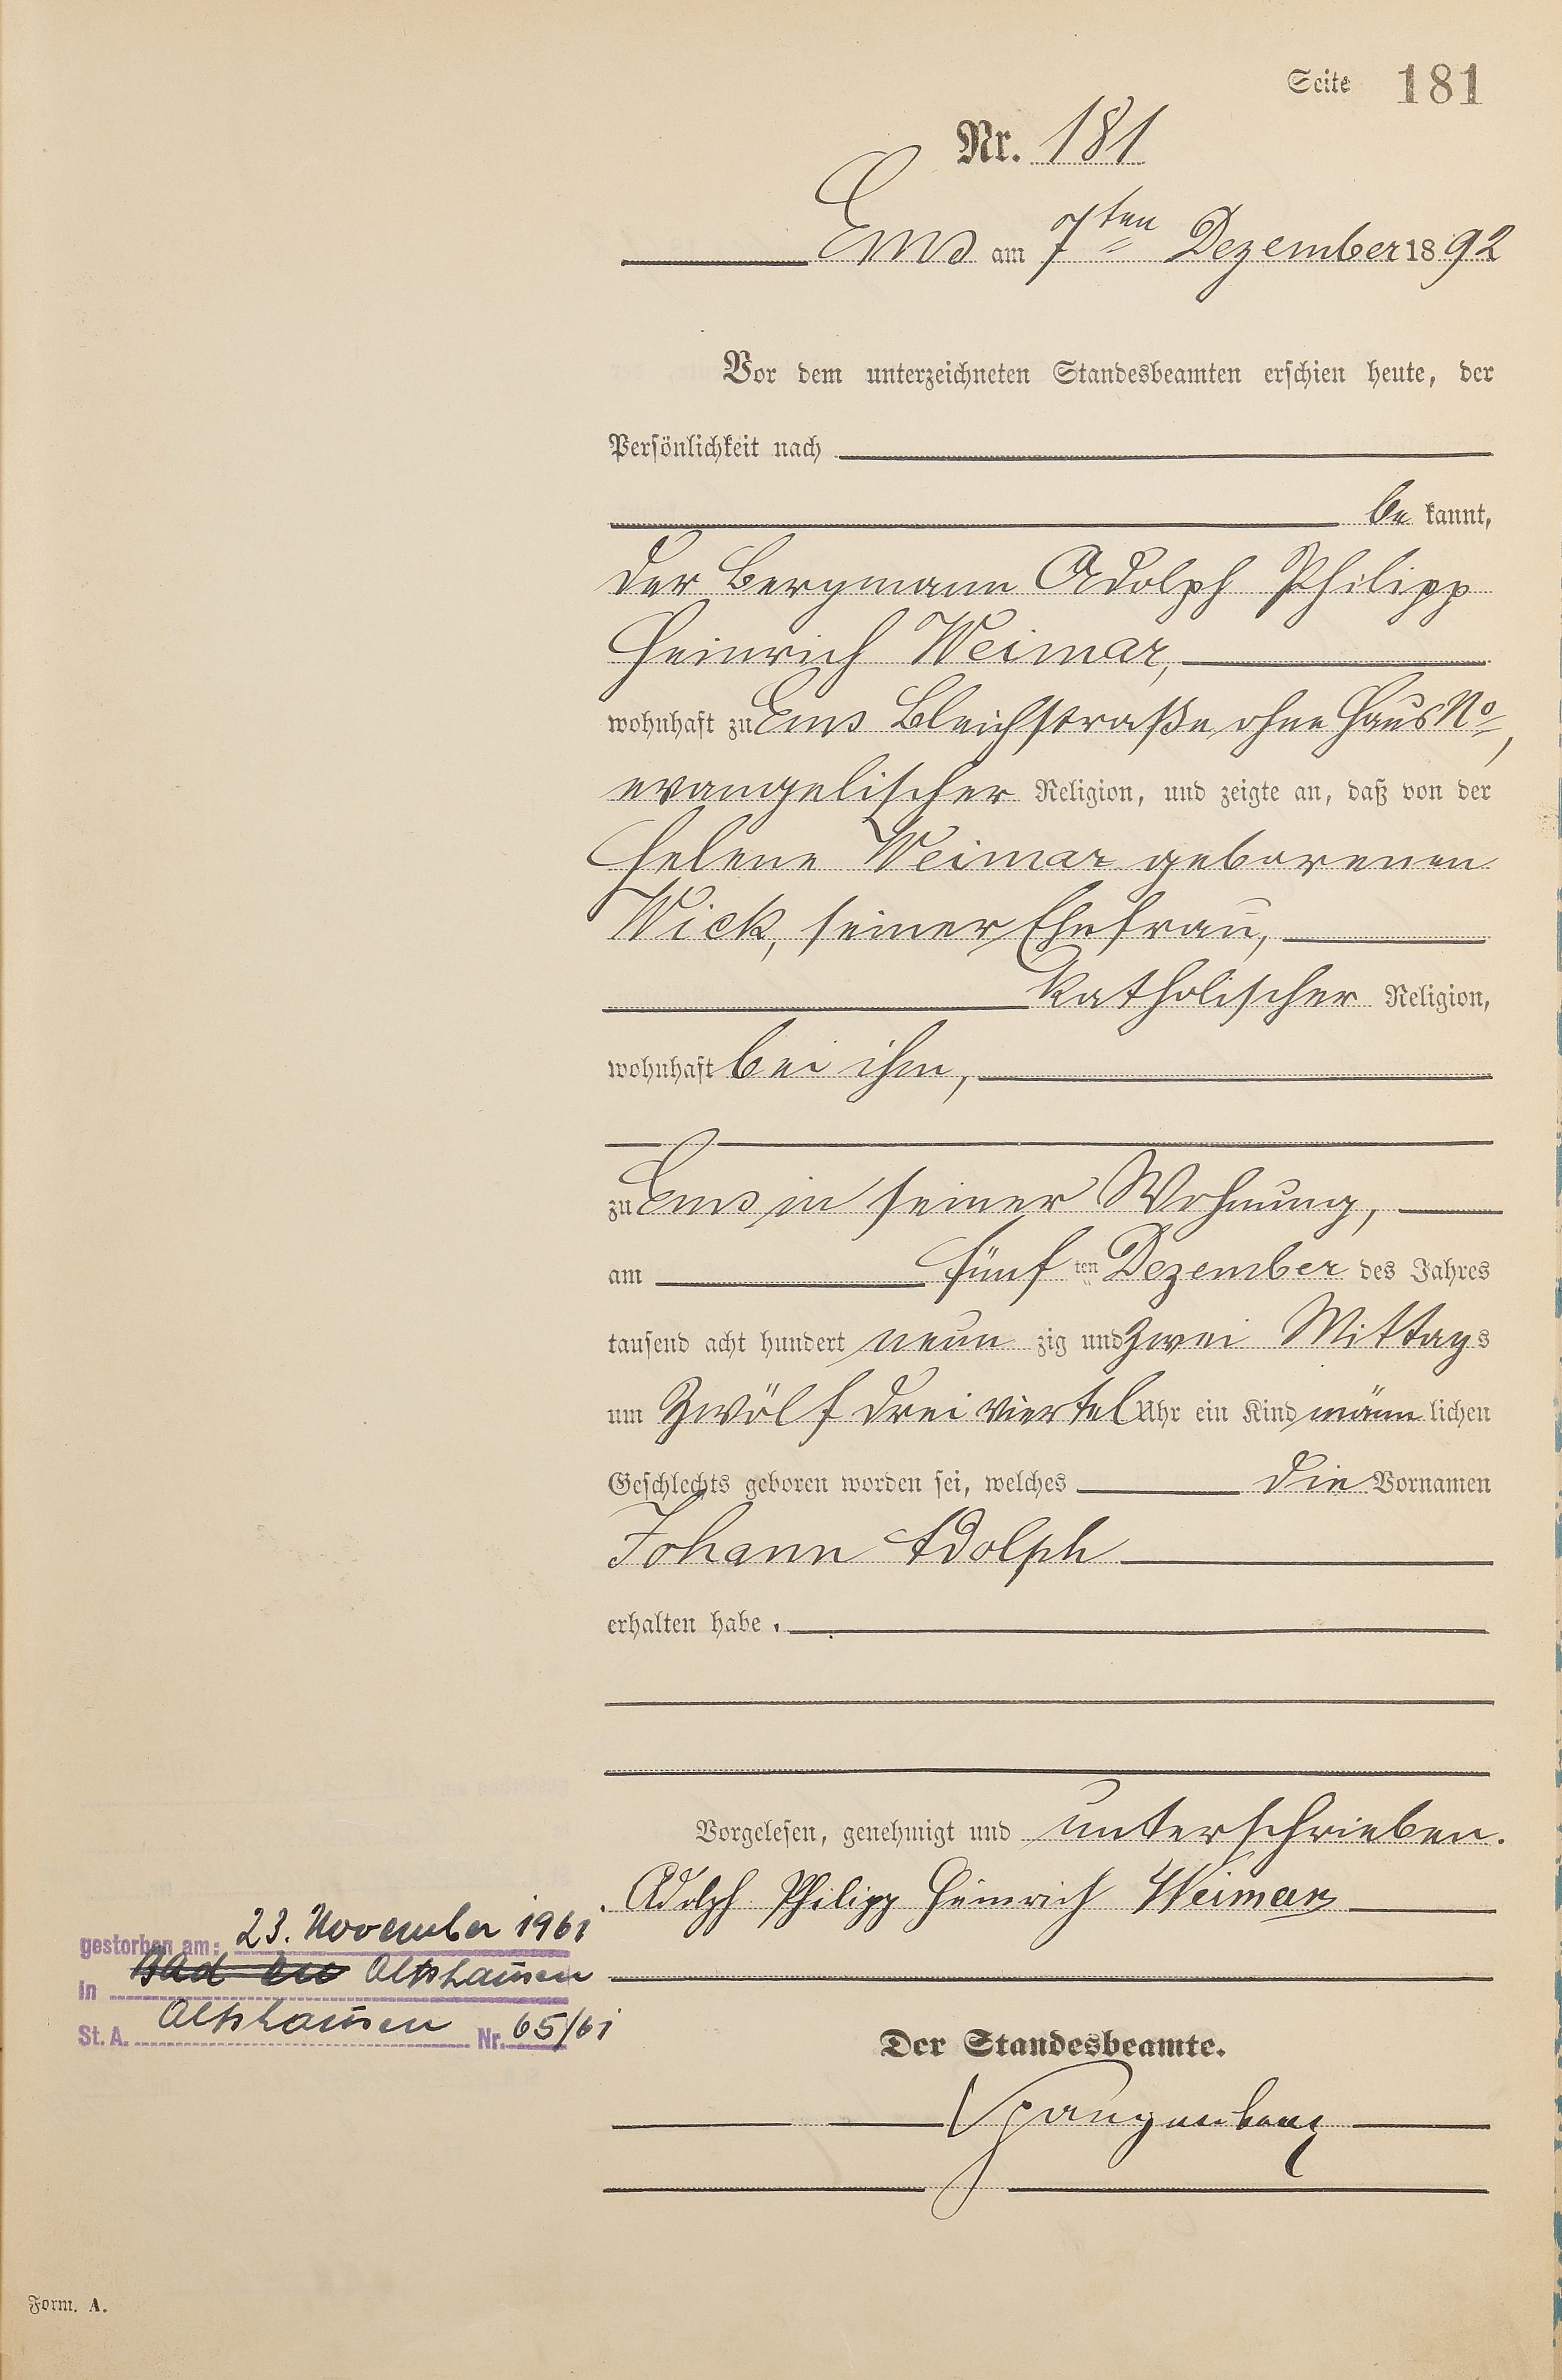 Seite 181
Nr. 181
Ems am 7ten Dezember 1892
Vor dem unterzeichneten Standesbeamten erschien heute, der
Persönlichkeit nach
be kannt,
der Bergmann Adolph Philipp
Heinrich Weimar,
wohnhaft zu Ems Bleichstraße ohne Haus No,
evangelischer Religion, und zeigte an, daß von der
Helene Weimar geborenen
Wick, seiner Ehefrau,
katholischer Religion,
wohnhaft bei ihm,
zu Ems in seiner Wohnung,
am fünf ten Dezember des Jahres
tausend acht hundert neun zig und zwei Mittags
um Zwölf drei viertel Uhr ein Kind männ lichen
Geschlechts geboren worden sei, welches die Vornamen
Johann Adolph
erhalten habe.
Vorgelesen, genehmigt und unterschrieben.
Adolph Philipp Heinrich Weimar
gestorben am: 23. November 1961
In Bad Altshausen
St. A. Altshausen Nr. 65/61
Der Standesbeamte.
Spangenberg
Form. A.